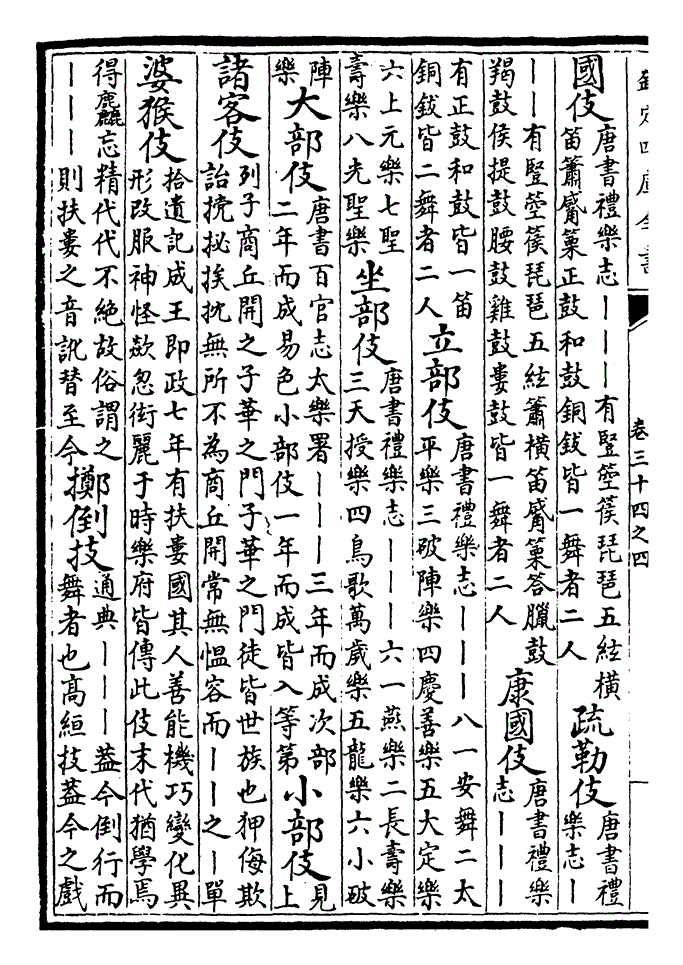 欽定四庫全書
卷三十四之四
國伎唐書禮樂志｜｜｜有豎箜篌琵琶五絃橫笛簫觱篥正鼓和鼓銅鈸皆一舞者二人疏勒伎唐書禮樂志｜
｜｜有豎箜篌琵琶五絃簫橫笛觱篥答臘鼓羯鼓侯提鼓腰鼓雞鼓婁鼓皆一舞者二人康國伎唐書禮樂志｜｜｜
有正鼓和鼓皆一笛銅鈸皆二舞者二人立部伎唐書禮樂志｜｜｜八一安舞二太平樂三破陣樂四慶善樂五大定樂
六上元樂七聖壽樂八光聖樂坐部伎唐書禮樂志｜｜｜六一燕樂二長壽樂三天授樂四鳥歌萬歲樂五龍樂六小破
陣樂大部伎唐書百官志太樂署｜｜｜三年而成次部二年而成易色小部伎一年而成皆入等第小部伎見上
諸客伎列子商丘開之子華之門子華之門徒皆世族也狎侮欺詒㨪㧙挨抌無所不為商丘開常無慍容而｜｜之｜單
婆猴伎拾遺記成王即政七年有扶婁國其人善能機巧變化異形改服神怪歘忽衒麗于時樂府皆傳此伎末代猶學焉
得麤忘精代代不絕故俗謂之｜｜｜則扶婁之音訛替至今擲倒技通典｜｜｜葢今倒行而舞者也高絙技葢今之戲